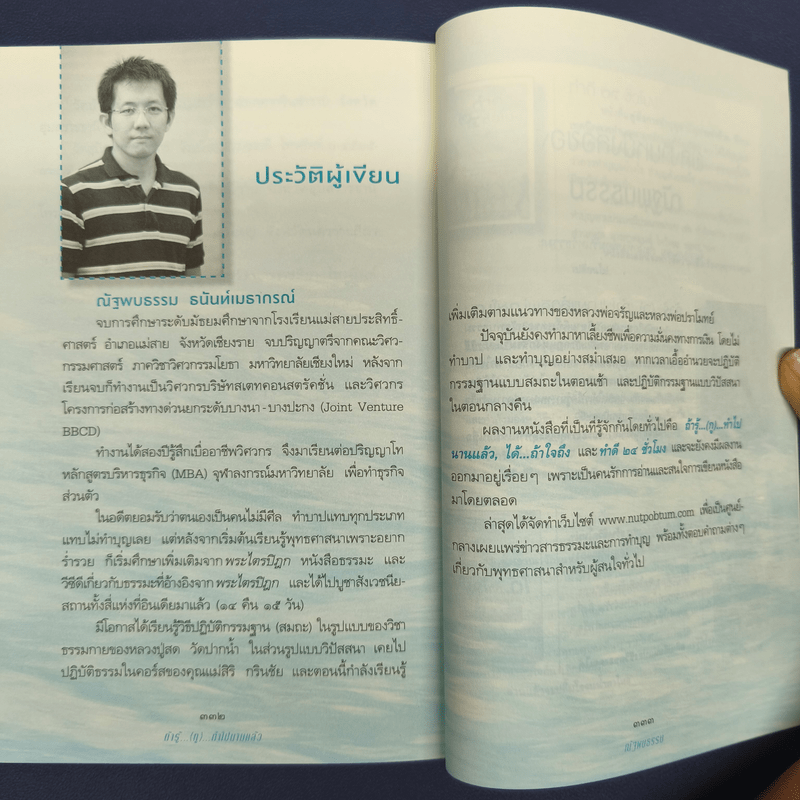 ประวัติผู้เขียน
ณัฐพบธรรม ธนันท์เมธากรณ์
จบการศึกษาระดับมัธยมศึกษาจากโรงเรียนแม่สายประสิทธิ์-
ศาสตร์ อำเภอแม่สาย จังหวัดเชียงราย จบปริญญาตรีจากคณะวิศว-
กรรมศาสตร์ ภาควิชาวิศวกรรมโยธา มหาวิทยาลัยเชียงใหม่ หลังจาก
เรียนจบก็ทำงานเป็นวิศวกรบริษัทสเตทคอนสตรัคชั่น และวิศวกร
โครงการก่อสร้างทางด่วนยกระดับบางนา-บางปะกง (Joint Venture
BBCD)
ทำงานได้สองปีรู้สึกเบื่ออาชีพวิศวกร จึงมาเรียนต่อปริญญาโท
หลักสูตรบริหารธุรกิจ (MBA) จุฬาลงกรณ์มหาวิทยาลัย เพื่อทำธุรกิจ
ส่วนตัว
ในอดีตยอมรับว่าตนเองเป็นคนไม่มีศีล ทำบาปแทบทุกประเภท
แทบไม่ทำบุญเลย แต่หลังจากเริ่มต้นเรียนรู้พุทธศาสนาเพราะอยาก
ร่ำรวย ก็เริ่มศึกษาเพิ่มเติมจากพระไตรปิฎก หนังสือธรรมะ และ
วีซีดีเกี่ยวกับธรรมะที่อ้างอิงจากพระไตรปิฎก และได้ไปบูชาสังเวชนีย-
สถานทั้งสี่แห่งที่อินเดียมาแล้ว (๑๔ คืน ๑๕ วัน)
มีโอกาสได้เรียนรู้วิธีปฏิบัติกรรมฐาน (สมถะ) ในรูปแบบของวิชา
ธรรมกายของหลวงปู่สด วัดปากน้ำ ในส่วนรูปแบบวิปัสสนา เคยไป
ปฏิบัติธรรมในคอร์สของคุณแม่สิริ กรินชัย และตอนนี้กำลังเรียนรู้
๓๓๒
ถ้ารู้...(กู)...ทำไปนานแล้ว
เพิ่มเติมตามแนวทางของหลวงพ่อจรัญและหลวงพ่อปราโมทย์
ปัจจุบันยังคงทำมาหาเลี้ยงชีพเพื่อความมั่นคงทางการเงิน โดยไม่
ทำบาป และทำบุญอย่างสม่ำเสมอ หากเวลาเอื้ออำนวยจะปฏิบัติ
กรรมฐานแบบสมถะในตอนเช้า และปฏิบัติกรรมฐานแบบวิปัสสนา
ในตอนกลางคืน
ผลงานหนังสือที่เป็นที่รู้จักกันโดยทั่วไปคือ ถ้ารู้...(กู)...ทำไป
นานแล้ว, ได้...ถ้าใจถึง และ ทำดี ๒๔ ชั่วโมง และจะยังคงมีผลงาน
ออกมาอยู่เรื่อยๆ เพราะเป็นคนรักการอ่านและสนใจการเขียนหนังสือ
มาโดยตลอด
ล่าสุดได้จัดทำเว็บไซต์ www.nutpobtum.com เพื่อเป็นศูนย์-
กลางเผยแพร่ข่าวสารธรรมะและการทำบุญ พร้อมทั้งตอบคำถามต่างๆ
เกี่ยวกับพุทธศาสนาสำหรับผู้สนใจทั่วไป
๓๓๓
ณัฐพบธรรม